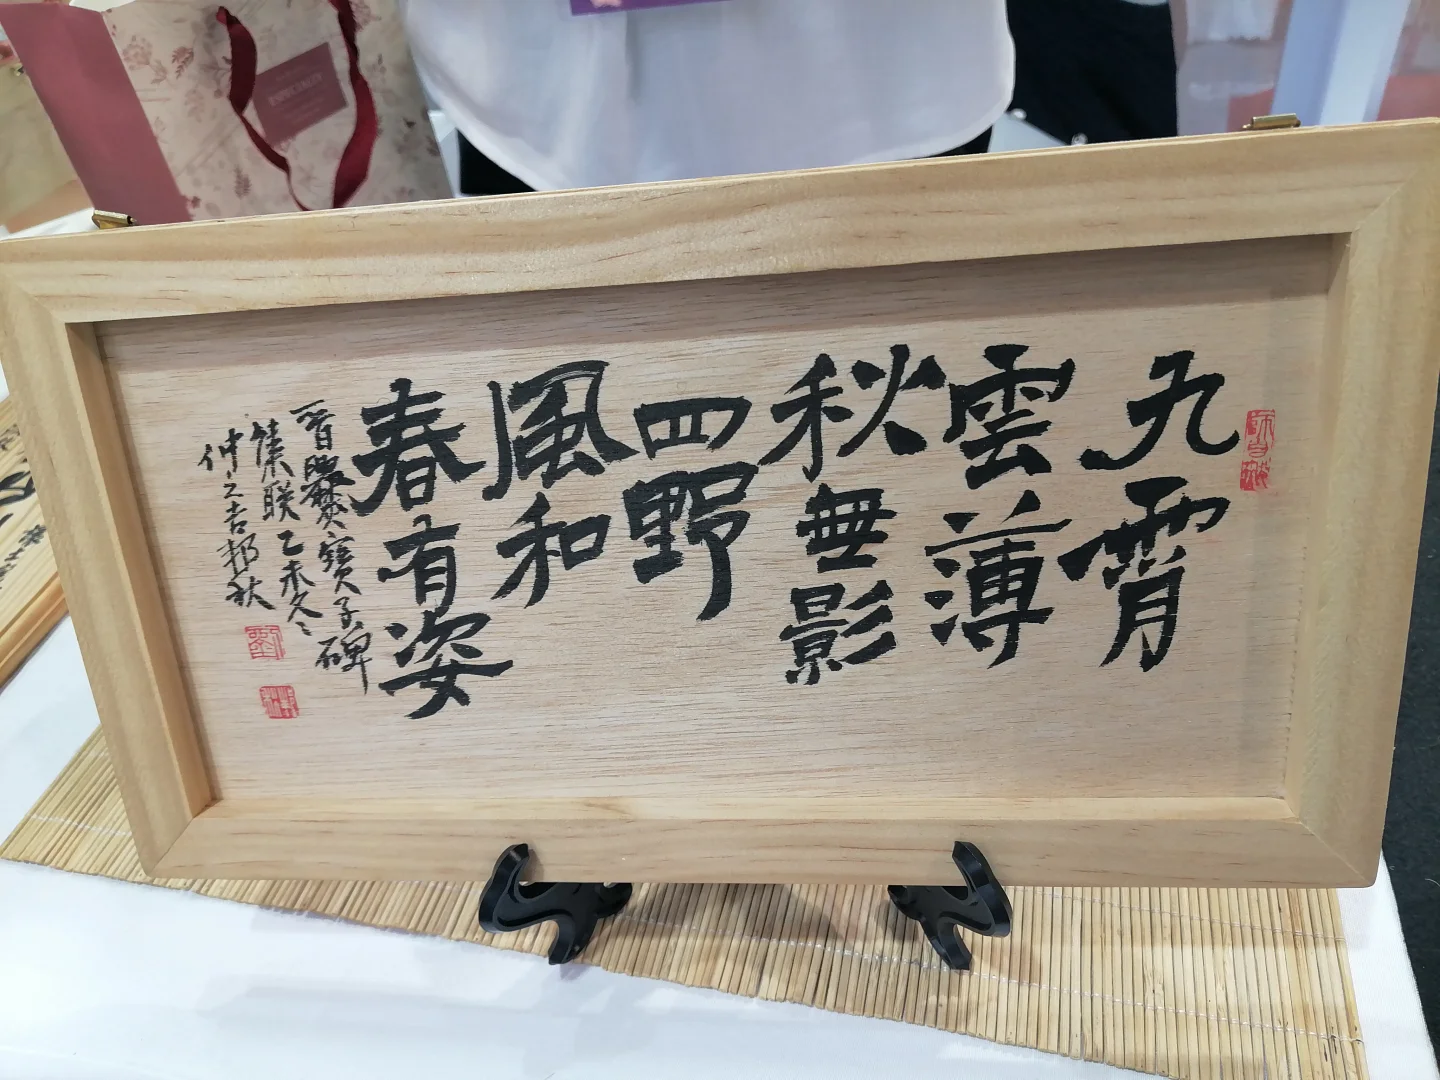 九霄
雲薄
秋無影
四野
風和
春有姿
晋爨寶子碑
集联乙未冬
仲之吉邦秋
ESPECIALLY